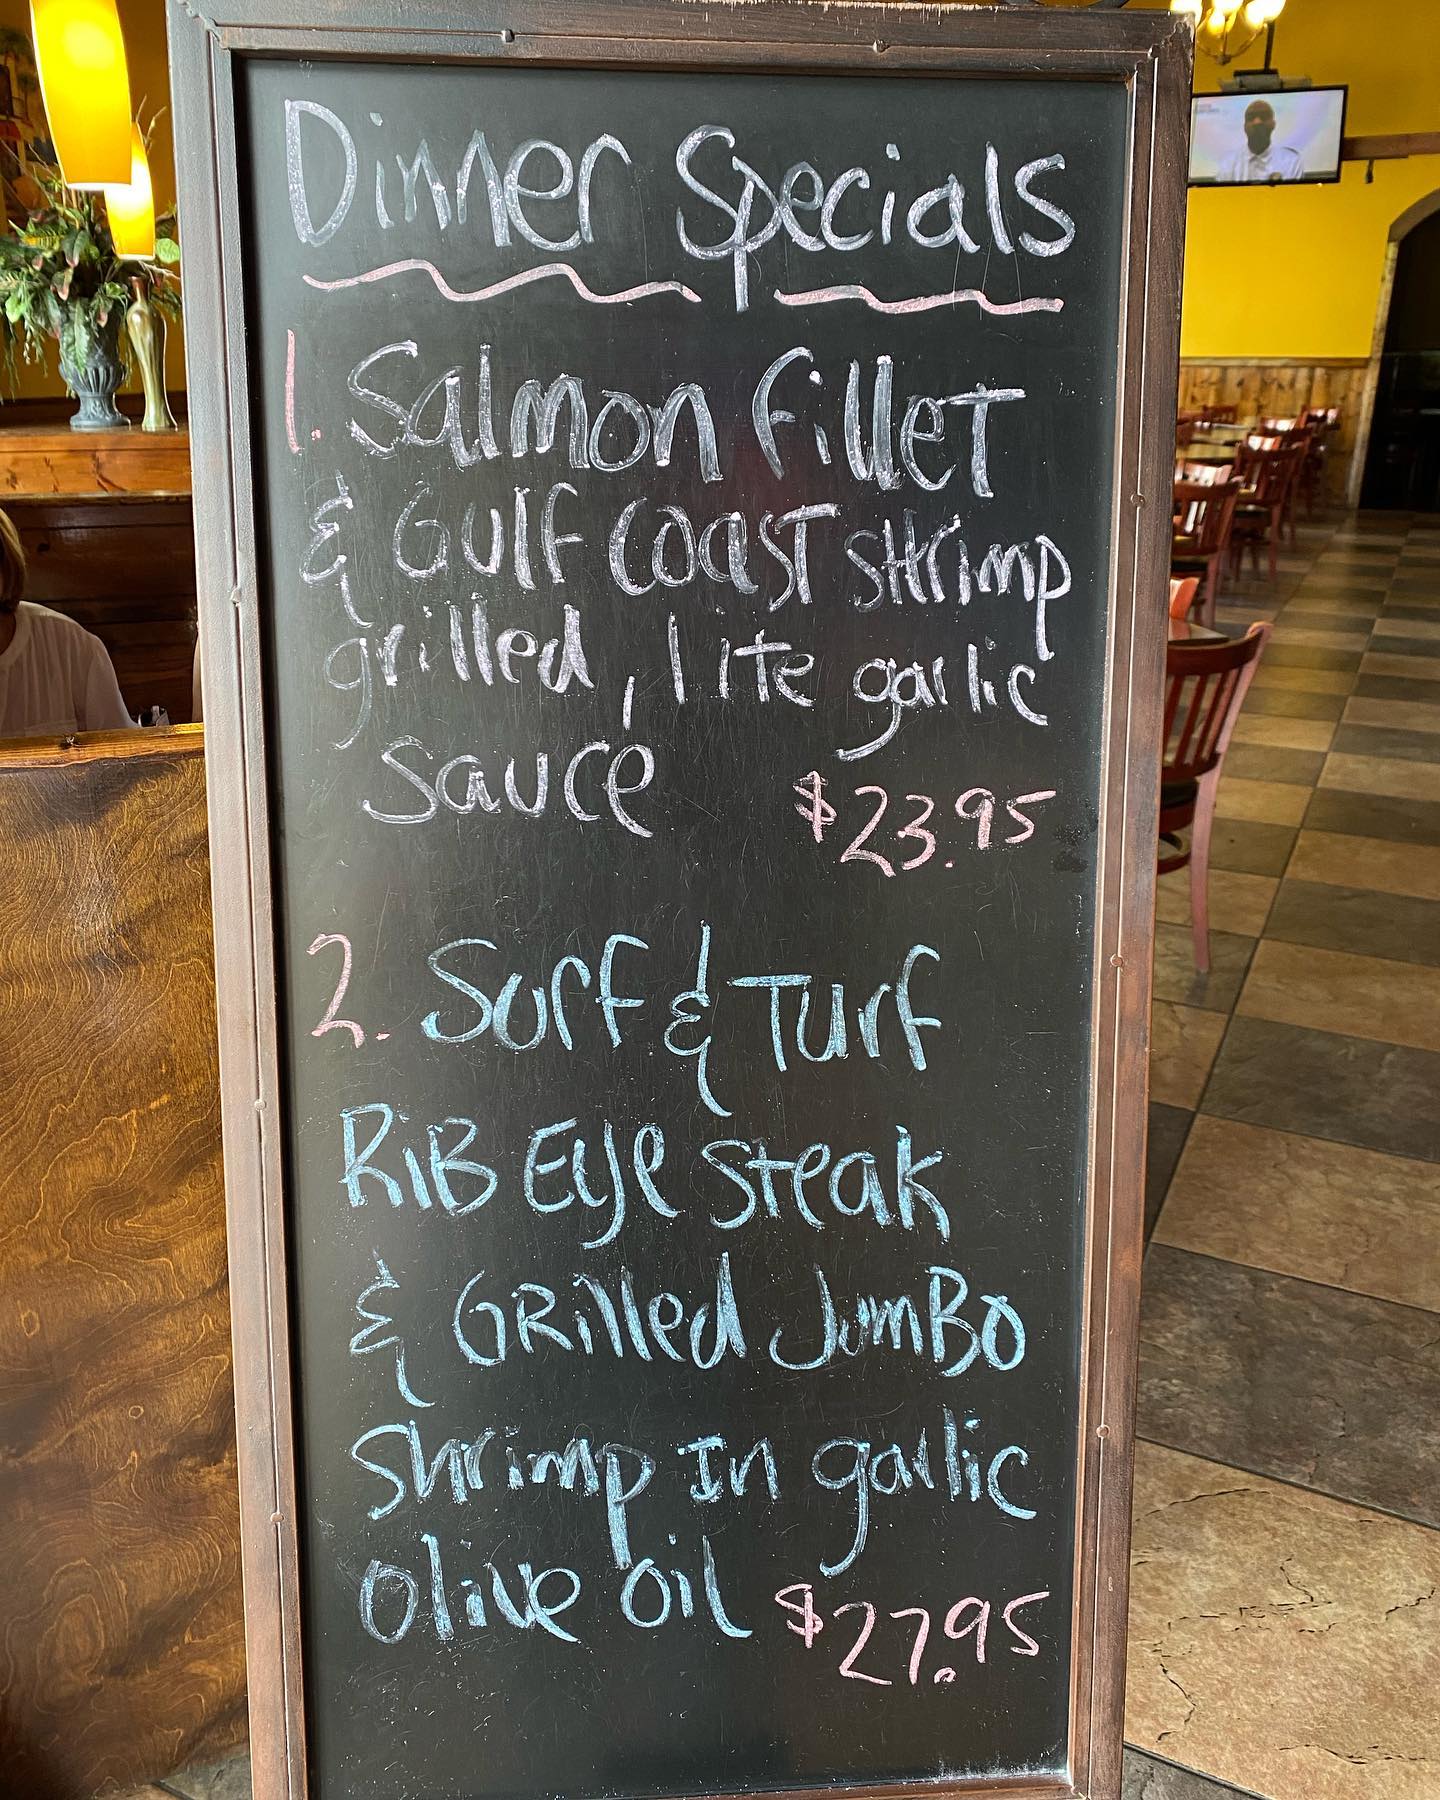 Dinner Specials
1. Salmon fillet
& Gulf Coast shrimp
grilled, lite garlic
sauce $23.95
2. Surf & Turf
Rib Eye steak
& Grilled Jumbo
Shrimp In garlic
Olive oil $27.95